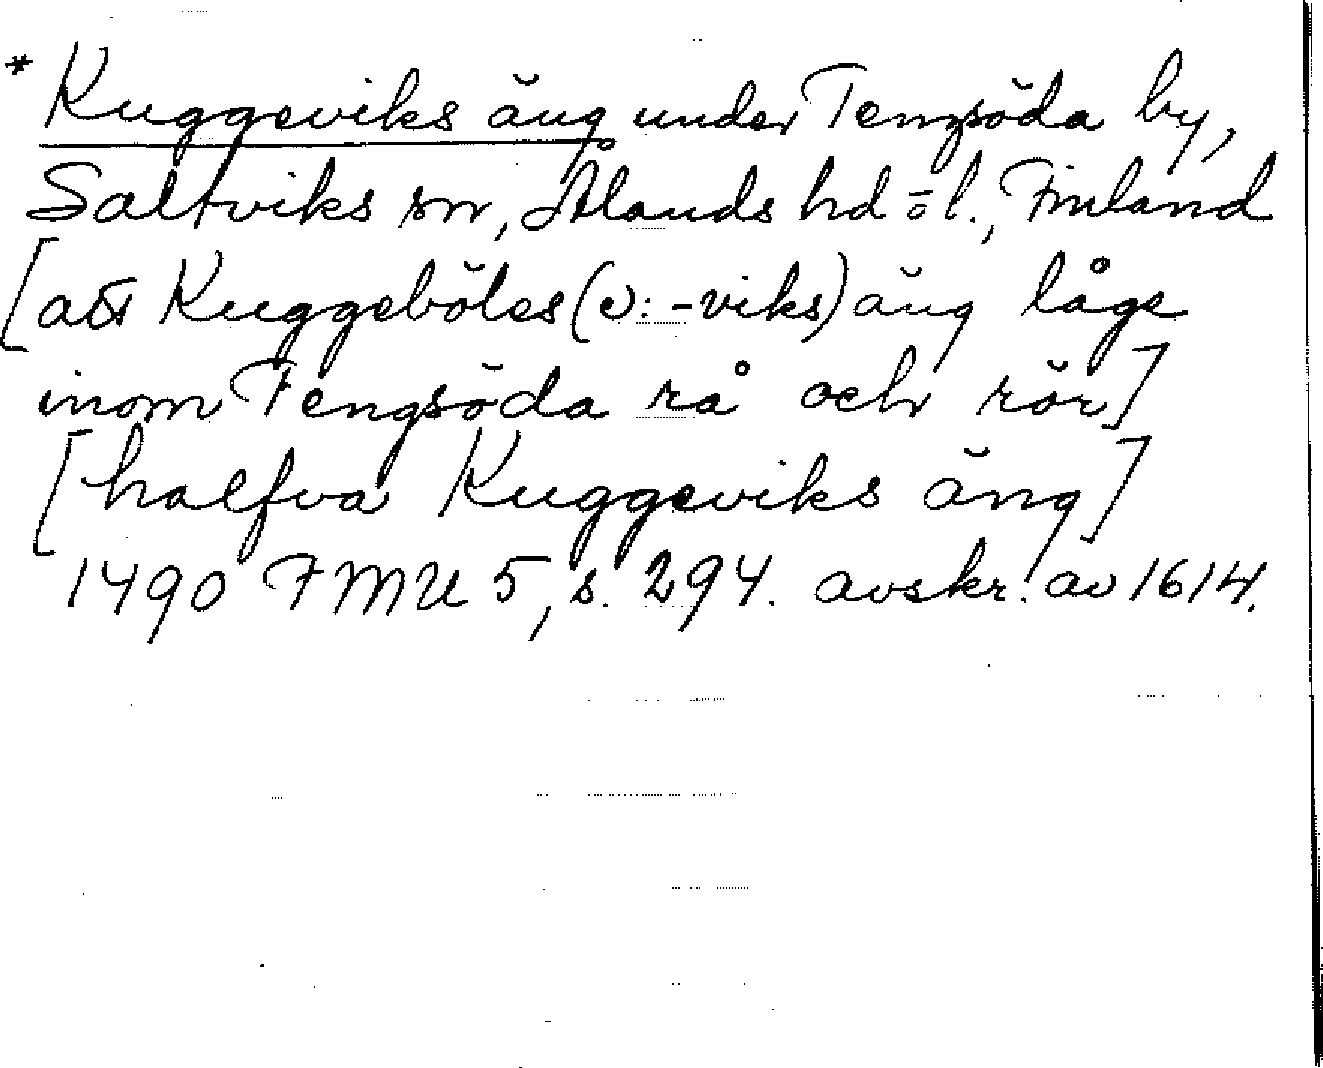 * Kuggeviks äng under Tengsöda by,
Saltviks sn, Ålands hd ō l., Finland
[att Kuggeböles (ɔ: -viks) äng låge
inom Tengsöda rå och rör]
[halfva Kuggeviks äng]
1490 FMU 5, s. 294. avskr. av 1614.